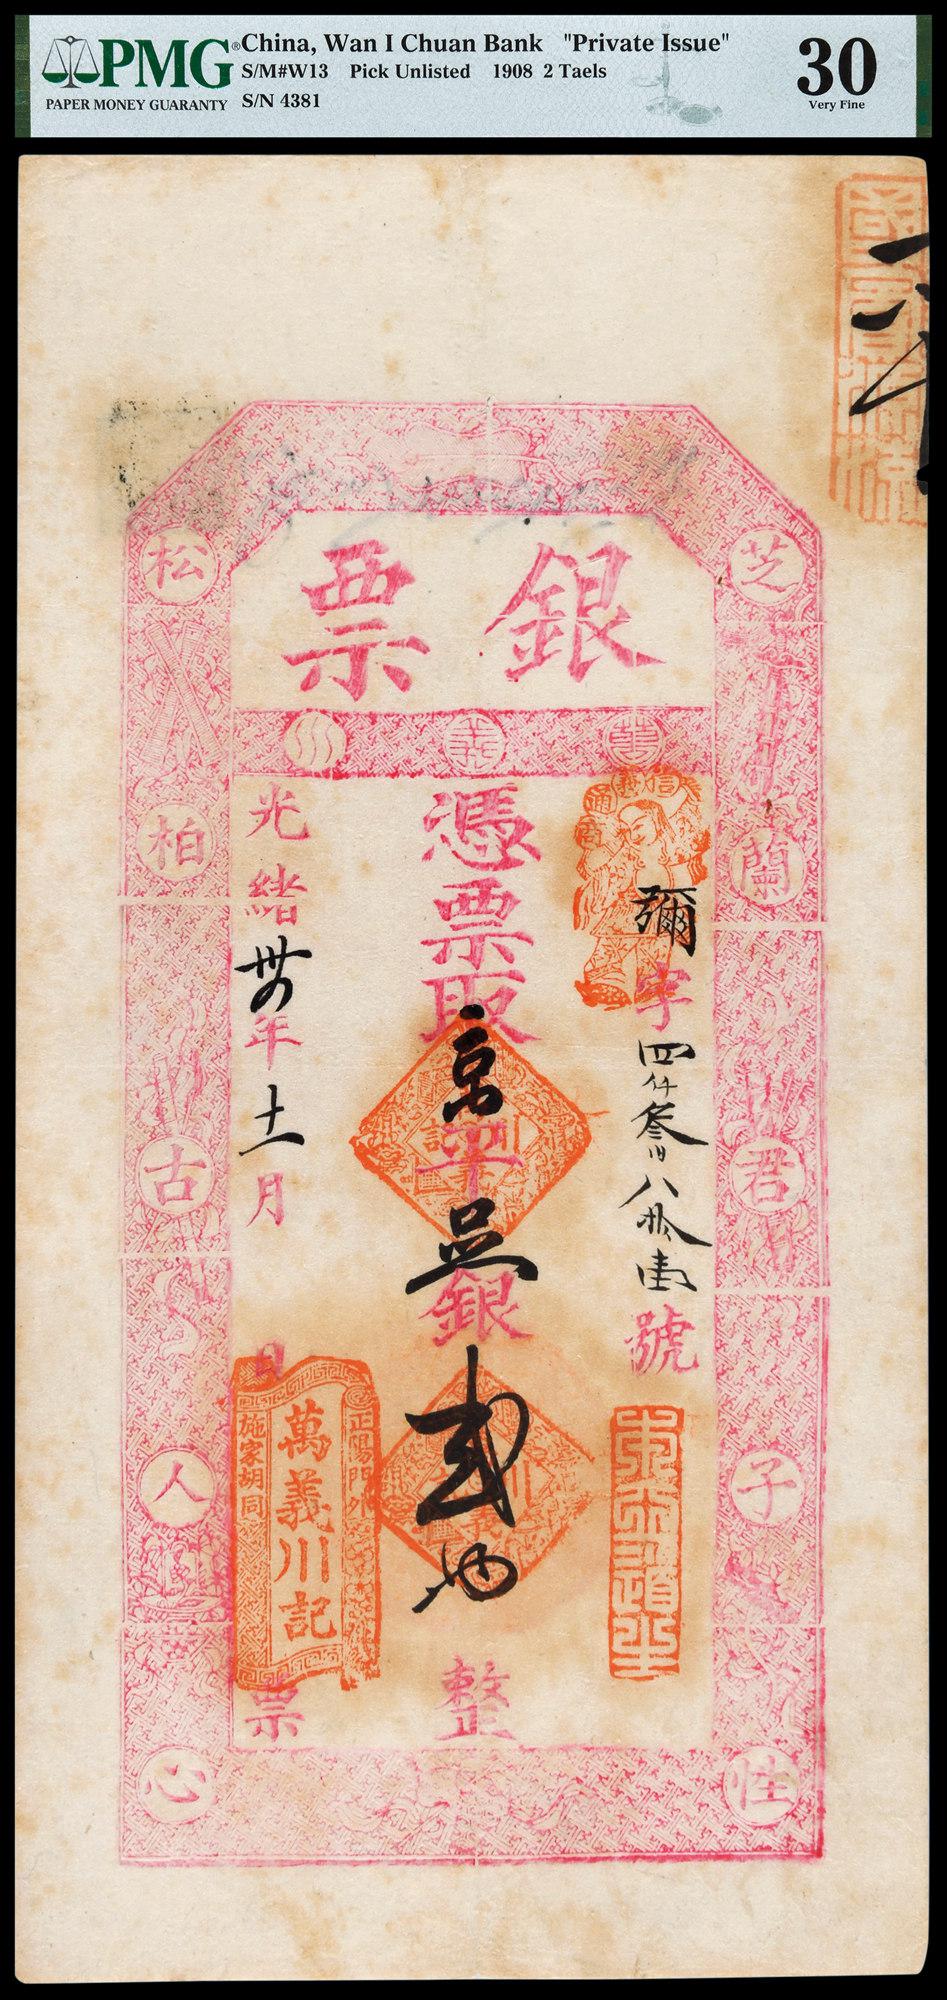 PMG®
PAPER MONEY GUARANTY
China, Wan I Chuan Bank "Private Issue"
S/M#W13 Pick Unlisted 1908 2 Taels
S/N 4381
30
Very Fine
銀票
萬義川
芝蘭君子性
松柏古人心
彌字四仟叁百八拾壹號
憑票取京平足銀貳兩整
光緒卅四年十一月日票
信義通商
正陽門外
萬義川記
施家胡同